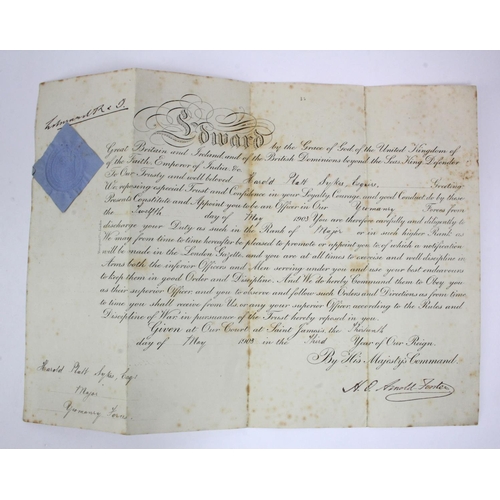 Edward R & I
Edward
by the Grace of God, of the United Kingdom of
Great Britain and Ireland, and of the British Dominions beyond the Seas, King, Defender
of the Faith, Emperor of India, &c.
To Our Trusty and well beloved Harold Platt Sykes Esquire Greeting
We reposing especial Trust and Confidence in your Loyalty, Courage, and good Conduct do by these
Presents Constitute and Appoint you to be an Officer in Our Yeomanry Forces from
the Twelfth day of May 1903. You are therefore carefully and diligently to
discharge your Duty as such in the Rank of Major or in such higher Rank as
We may from time to time hereafter be pleased to promote or appoint you to, of which a notification
will be made in the London Gazette, and you are at all times to exercise and well discipline in
Arms both the inferior Officers and Men serving under you and use your best endeavours
to keep them in good Order and Discipline. And We do hereby Command them to Obey you
as their superior Officer and you to observe and follow such Orders and Directions as from time
to time you shall receive from Us or any your superior Officer according to the Rules and
Discipline of War in pursuance of the Trust hereby reposed in you.
Given at Our Court at Saint James's, the
day of May in the Third Year of Our Reign.
By His Majesty's Command.
H. O. Arnold Forster
Harold Platt Sykes Esqr
Major
Yeomanry Forces